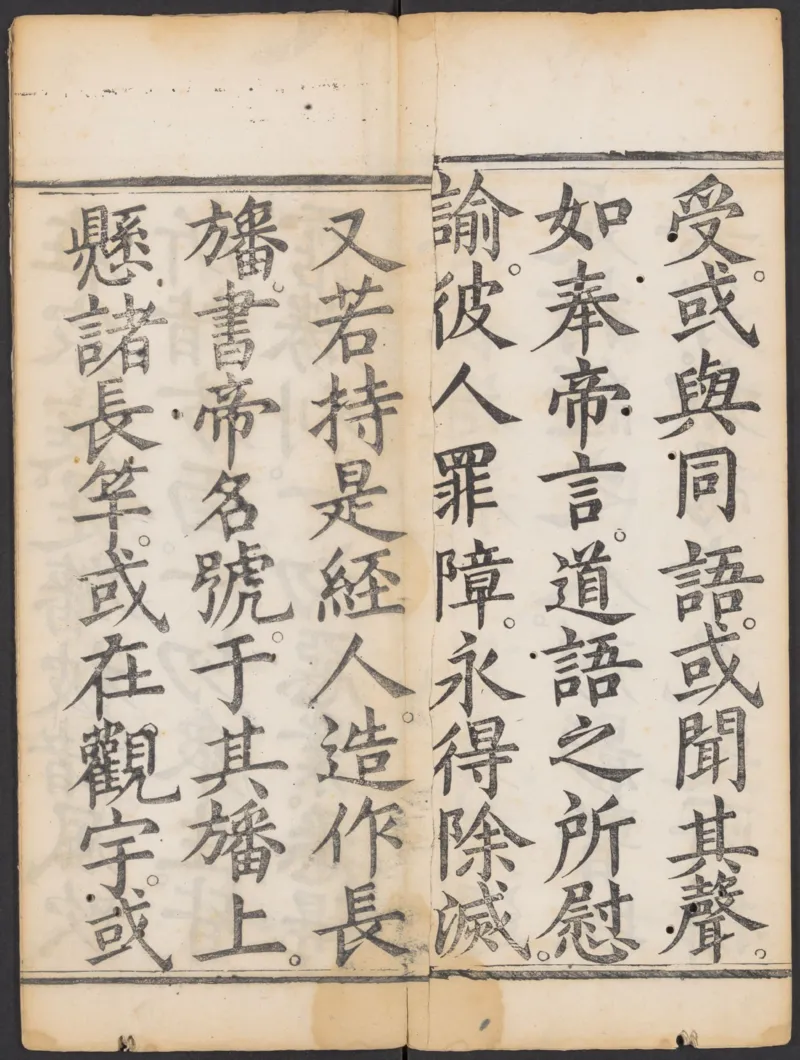 受。或與同語。或聞其聲。
如奉帝言。道語之所慰
諭。彼人罪障。永得除滅。
又若持是経人。造作長
旛。書帝名號。于其旛上。
懸諸長竿。或在觀宇。或